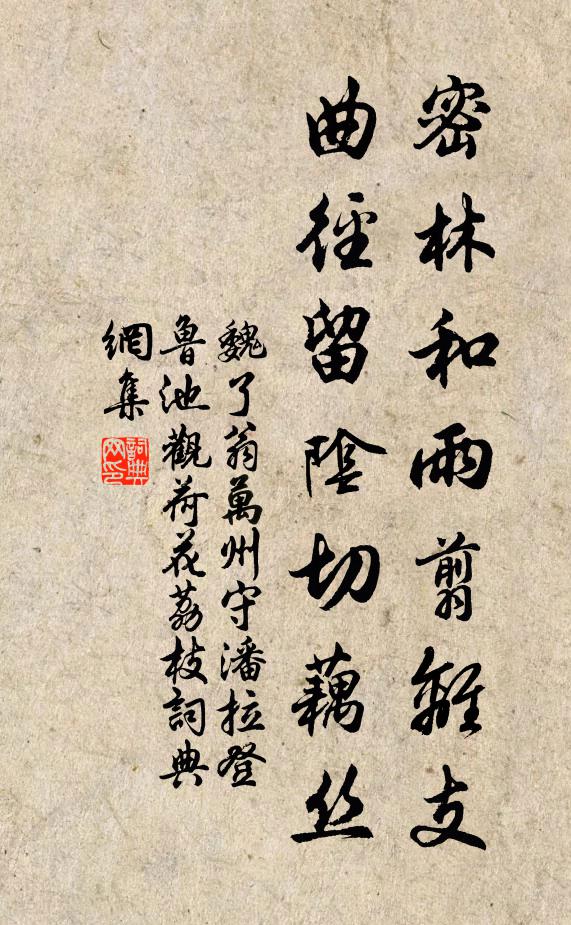 密林和雨翦離支
曲徑留陰切藕丝
魏了翁萬州守潘拉登
魯池觀荷花荔枝詞典
網集
詞典網印